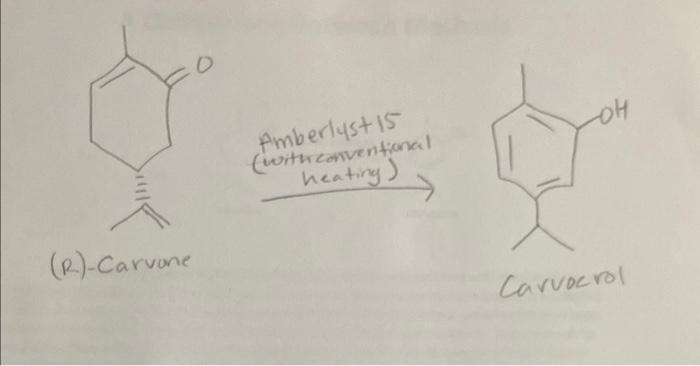 O
Amberlyst 15
(with conventional
heating)
OH
(R)-Carvone
Carvacrol